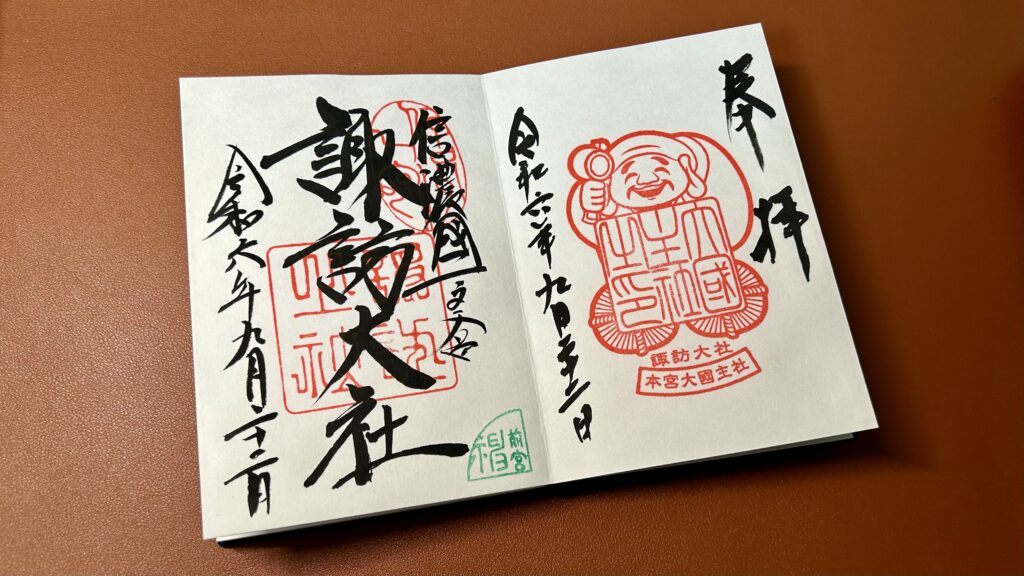 奉拝
大國
主社
之印
諏訪大社
本宮大國主社
令和六年九月二十二日
信濃國一之宮
諏訪大社
前宮
令和六年九月二十二日